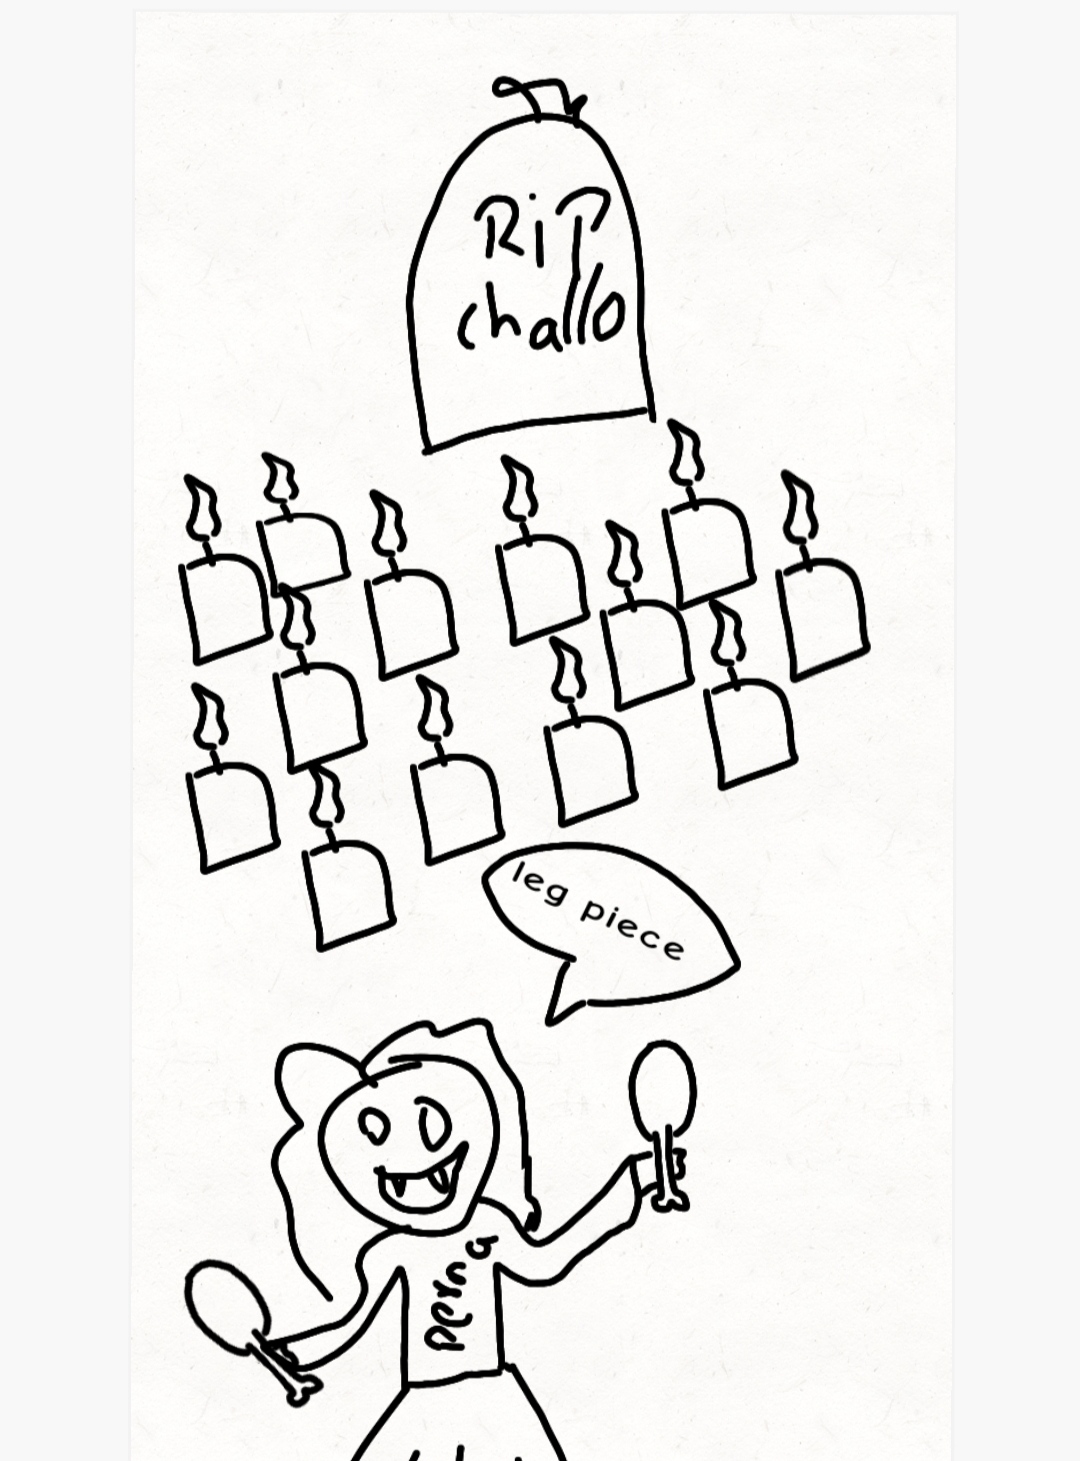 RiP
challo
leg piece
perna